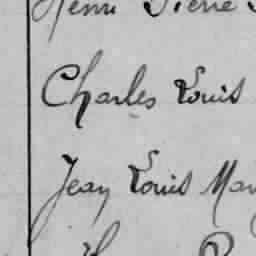 Henri Pierre
Charles Louis
Jean Louis Mar